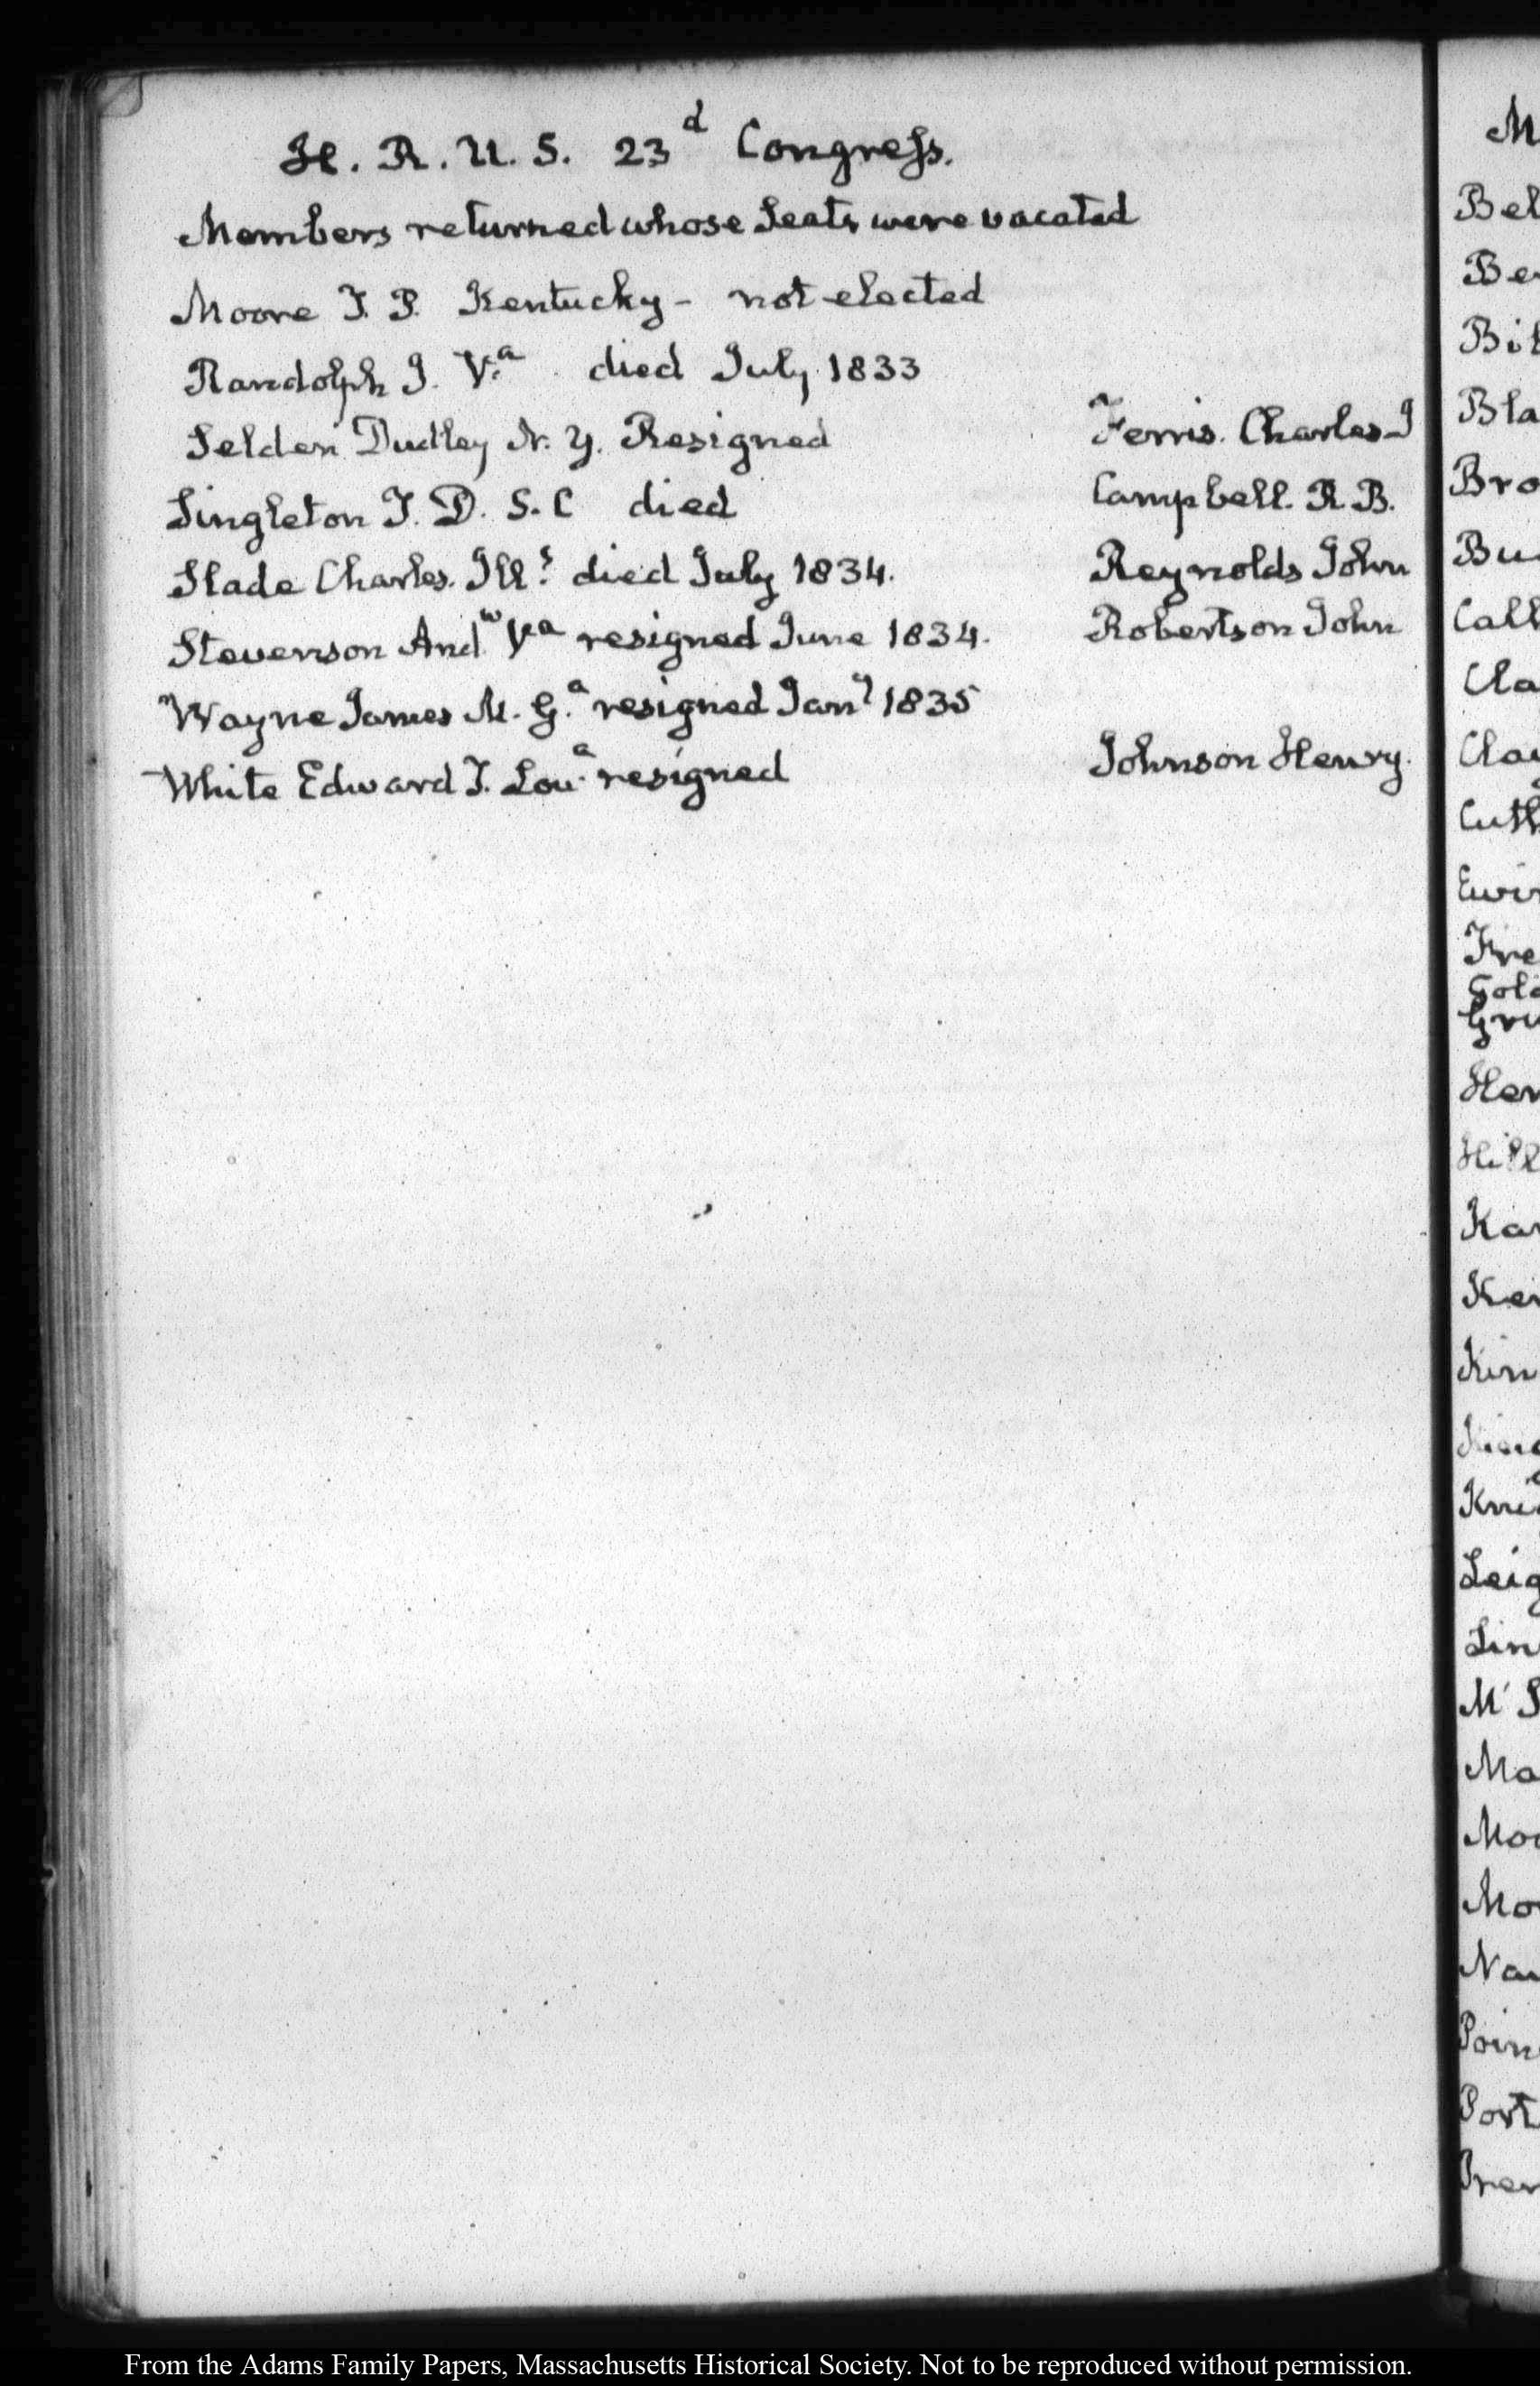 H. R. U. S. 23d Congress.
Members returned whose Seats were vacated
Moore T. P. Kentucky - not elected
Randolph J. Va. died July 1833
Selden Dudley N. Y. Resigned Ferris. Charles G
Singleton T. D. S. C died Campbell. R. B.
Slade Charles. Ills. died July 1834. Reynolds John
Stevenson Andw Va resigned June 1834. Robertson John
Wayne James M. Ga. resigned Jany 1835
White Edward D. Loua. resigned Johnson Henry.
M
Bel
Be
Bi
Bla
Bro
Bu
Call
Cla
Cla
Cuth
Ewi
Fre
Gold
Gru
Hen
Hill
Ka
Ke
Kin
Kni
Leig
Lin
M
Ma
Mo
Mo
Na
Poin
Port
Pre
From the Adams Family Papers, Massachusetts Historical Society. Not to be reproduced without permission.